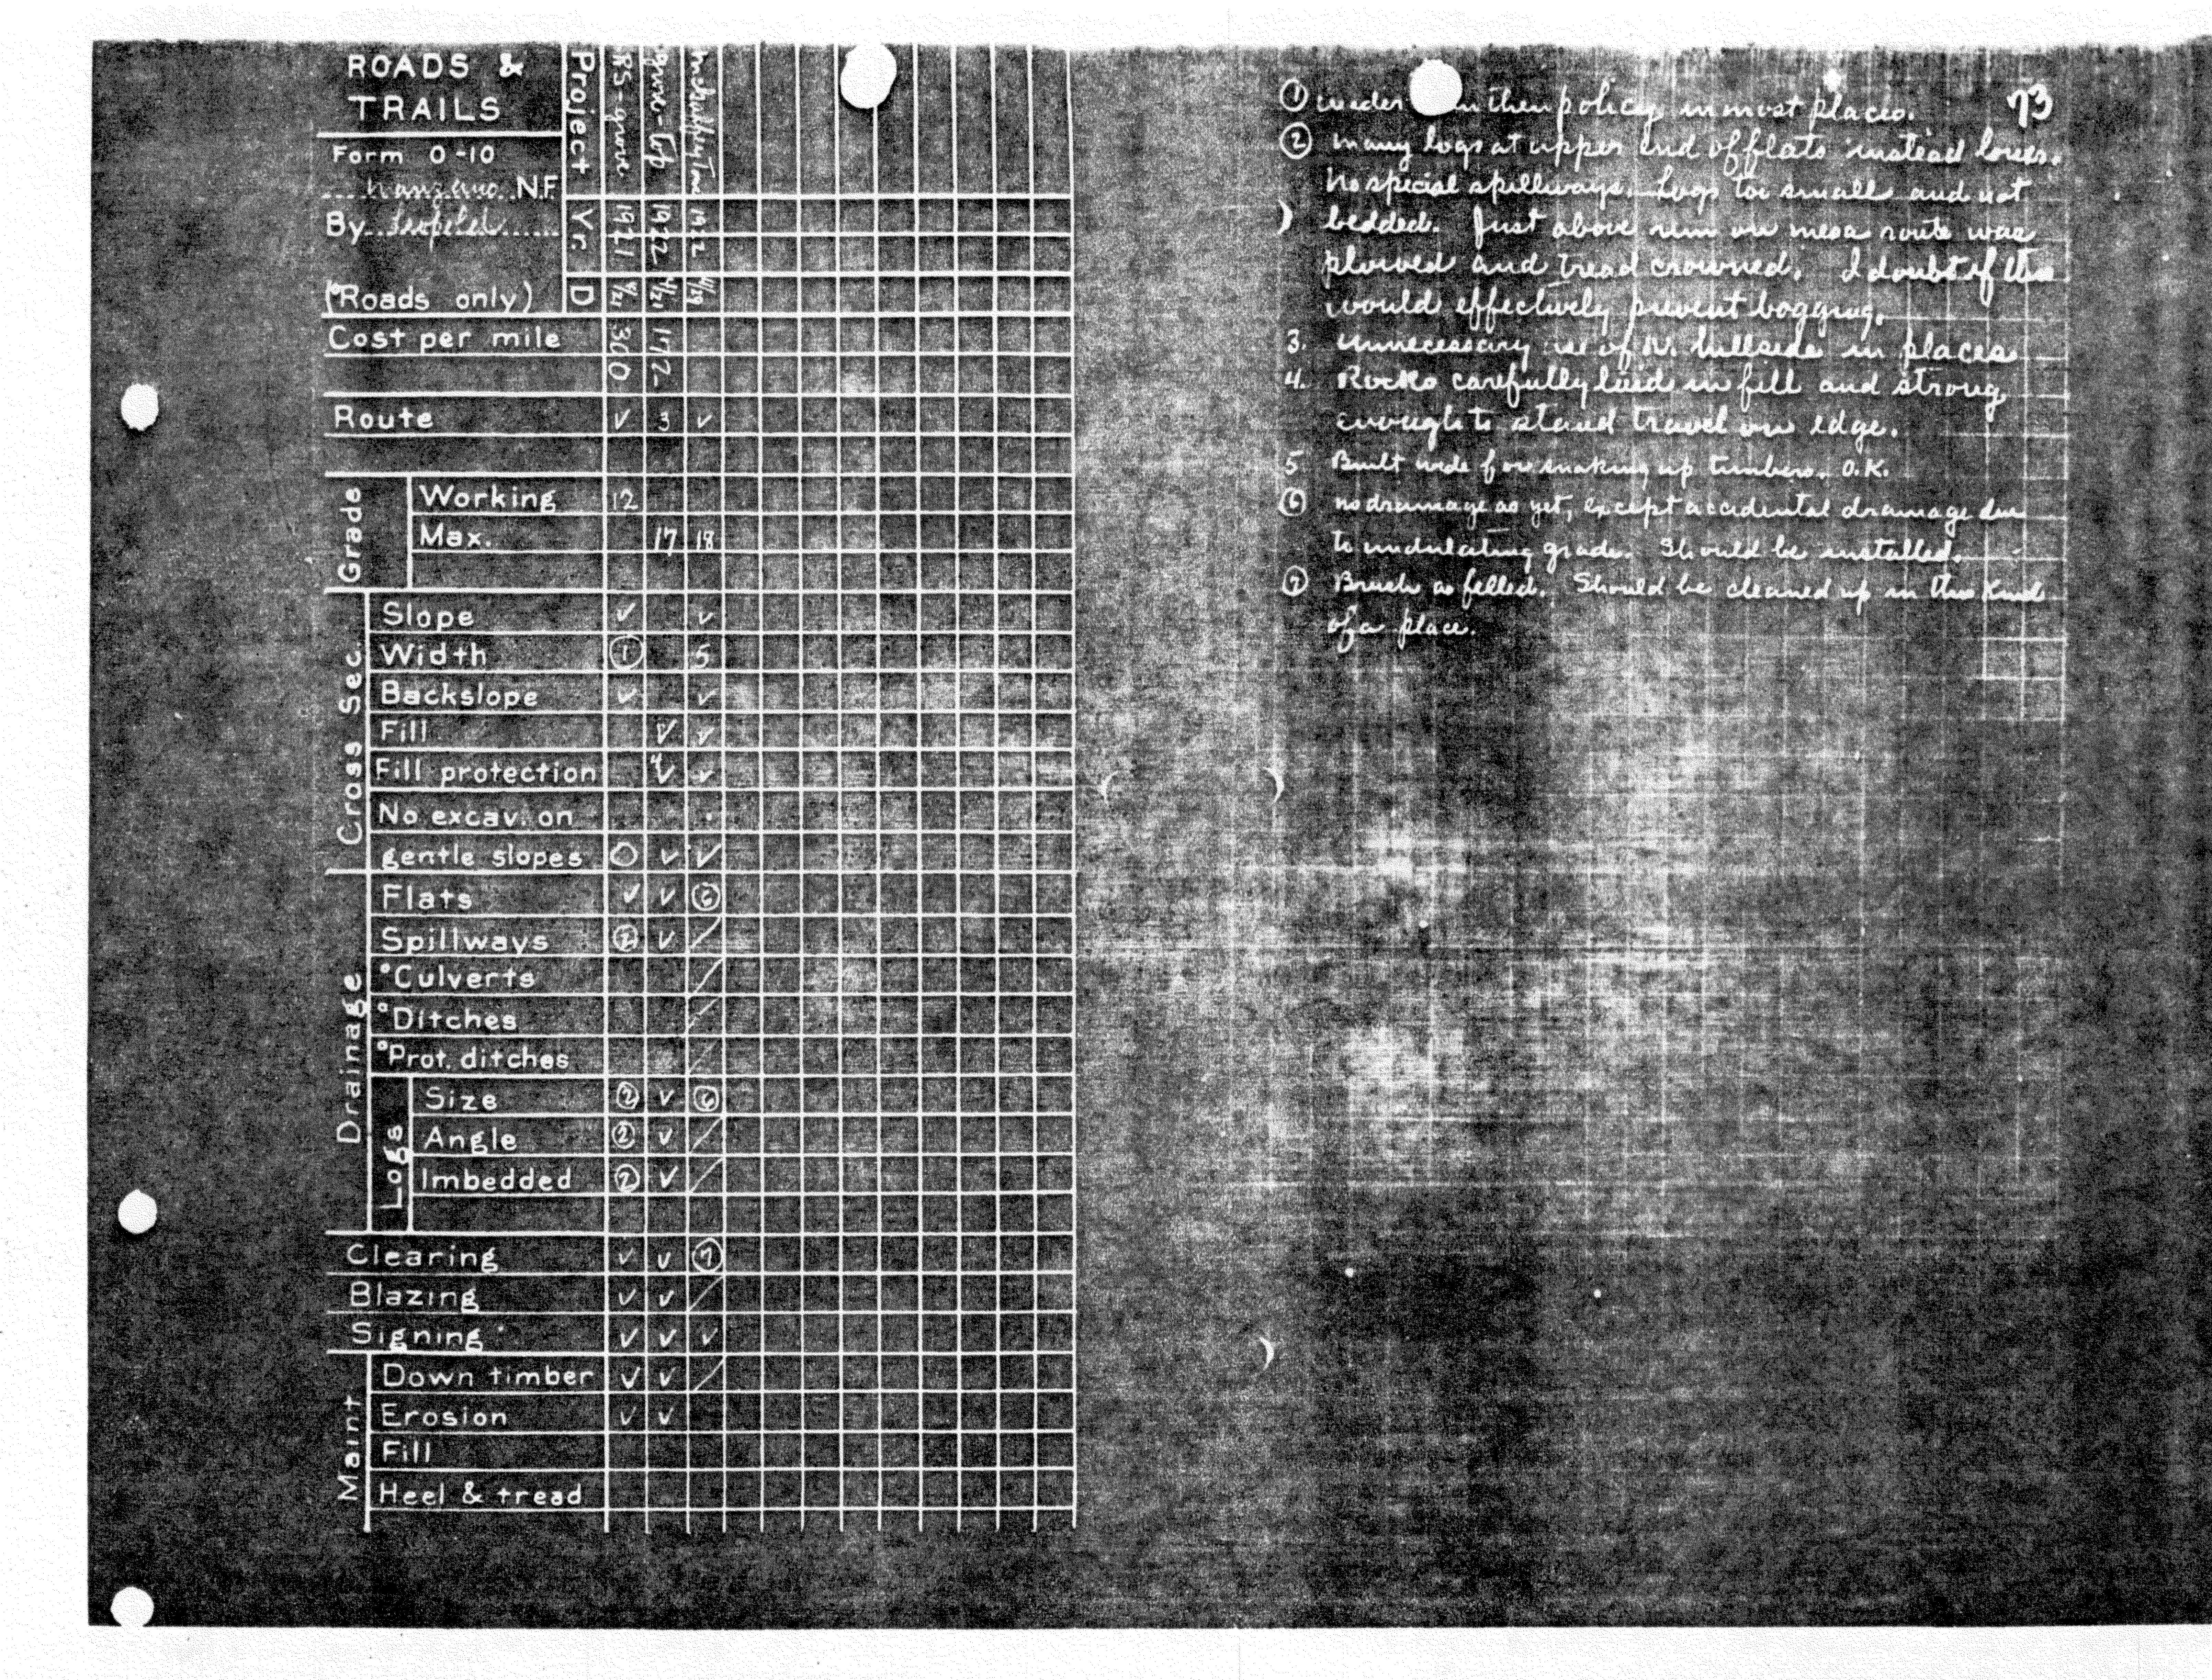 ROADS &
TRAILS
Form O-10
Manzano N.F.
By Leopold
(°Roads only)
Project RS-grove Grove-Top
Yr. 1921 1922
D 4/21 4/21 4/29
Cost per mile 300 172-
Route ✓ 3 ✓
Grade
Working 12
Max. 17 18
Cross Sec.
Slope ✓ ✓
Width ① 5
Backslope ✓ ✓
Fill ✓ ✓
Fill protection 4✓ ✓
No excav. on
gentle slopes O ✓ ✓
Drainage
Flats ✓ ✓ ⑥
Spillways ② ✓ /
°Culverts /
°Ditches /
°Prot. ditches /
Logs
Size ② ✓ ⑥
Angle ② ✓ /
Imbedded ② ✓ /
Clearing ✓ ✓ ⑦
Blazing ✓ ✓ /
Signing ✓ ✓ ✓
Maint
Down timber ✓ ✓ /
Erosion ✓ ✓
Fill
Heel & tread
73
① wider then policy in most places.
② many logs at upper end of flats instead lower.
No special spillways. Logs too small and not
bedded. Just above rim on mesa route was
plowed and tread crowned. I doubt if this
would effectively prevent bogging.
3. Unnecessary use of N. hillside in places
4. Rocks carefully laid in fill and strong
enough to stand travel on edge.
5 Built wide for snaking up timbers. O.K.
⑥ no drainage as yet, except accidental drainage due
to undulating grade. Should be installed.
⑦ Brush as felled. Should be cleaned up in this kind
of a place.